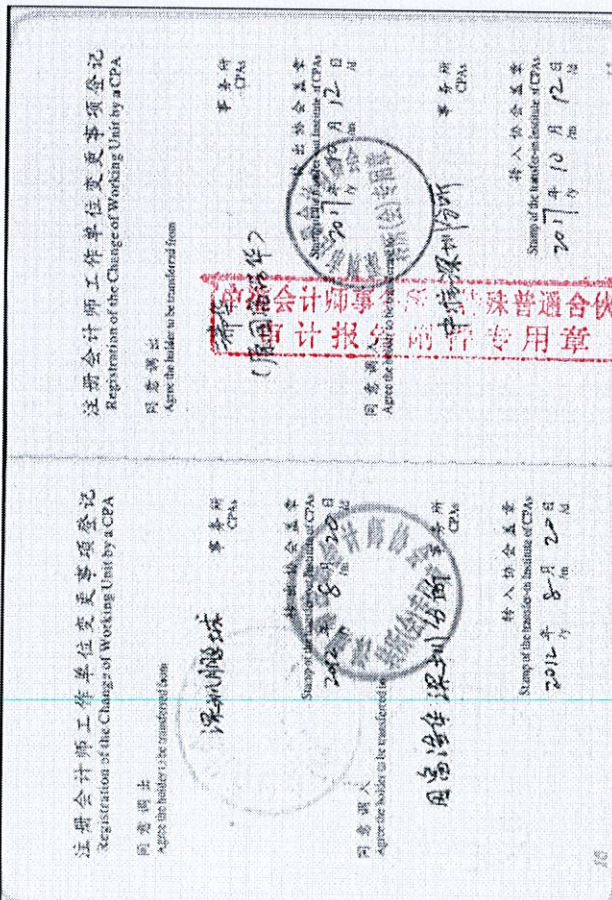 注册会计师工作单位变更事项登记
Registration of the Change of Working Unit by a CPA
同意调出
Agree the holder to be transferred from
深圳鹏城
事务所
CPAs
转出协会盖章
Stamp of the transfer-out Institute of CPAs
2012年 8月 20日
/y /m /d
同意调入
Agree the holder to be transferred to
国富浩华深圳分所
事务所
CPAs
转入协会盖章
Stamp of the transfer-in Institute of CPAs
2012年 8月 20日
/y /m /d
10
注册会计师工作单位变更事项登记
Registration of the Change of Working Unit by a CPA
同意调出
Agree the holder to be transferred from
事务所
CPAs
转出协会盖章
Stamp of the transfer-out Institute of CPAs
2017年 10月 12日
/y /m /d
同意调入
Agree the holder to be transferred to
深圳分所
事务所
CPAs
转入协会盖章
Stamp of the transfer-in Institute of CPAs
2017年 10月 12日
/y /m /d
会计师事 殊普通合伙
审计报告附件专用章